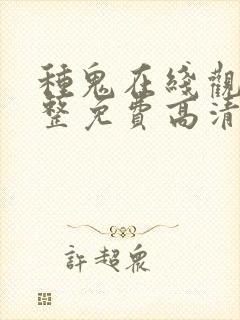 種鬼在綫觀
整免費高清
許超衆